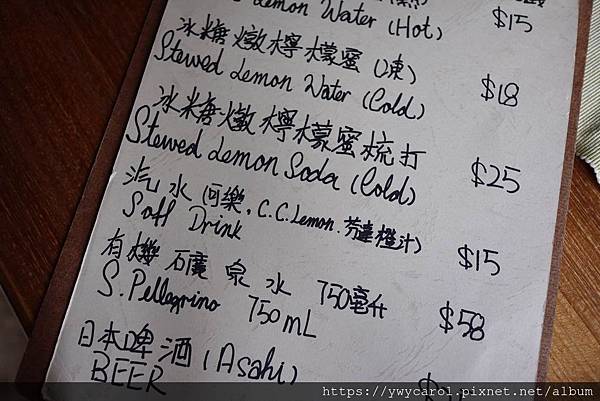 Lemon Water (Hot) $15
冰糖燉檸檬蜜(凍) $18
Stewed Lemon Water (Cold)
冰糖燉檸檬蜜梳打 $25
Stewed Lemon Soda (Cold)
汽水(可樂,C.C.Lemon.芬達橙汁) $15
Soft Drink
有機石礦泉水 750毫升 $58
S.Pellegrino 750mL
日本啤酒(Asahi)
BEER
https://ywycarol.pixnet.net/album